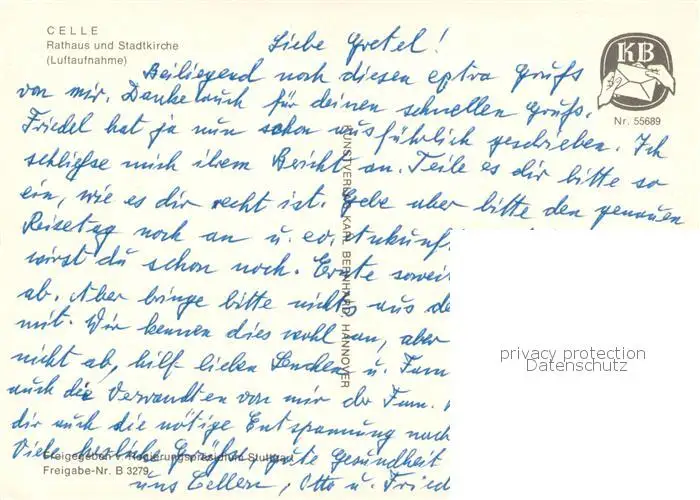 CELLE
Rathaus und Stadtkirche
(Luftaufnahme)
KB
Nr. 55689
Liebe Gretel!
Beiliegend noch diesen extra Gruß
von mir. Danke auch für deinen schnellen Gruß.
Friedel hat ja nun schon ausführlich geschrieben. Ich
schließe mich ihrem Bericht an. Teile es dir bitte so
ein, wie es dir recht ist. Gebe aber bitte den genauen
Reisetag noch an u. ev. Ankunf
wirst du schon noch. Ernte soweit
ab. Aber bringe bitte nichts aus de
mit. Wir kennen dies wohl an, aber
nicht ab, hilf lieben u. Fam
auch die Verwandten von mir der Fam.
dir auch die nötige Entspannung nach
Viele herzliche Grüße, gute Gesundheit
uns Cellern, Otto u. Fried
KUNSTVERLAG KARL BERNHARD, HANNOVER
Freigegeben v. Regierungspräsidium Stuttgart
Freigabe-Nr. B 3279
privacy protection
Datenschutz